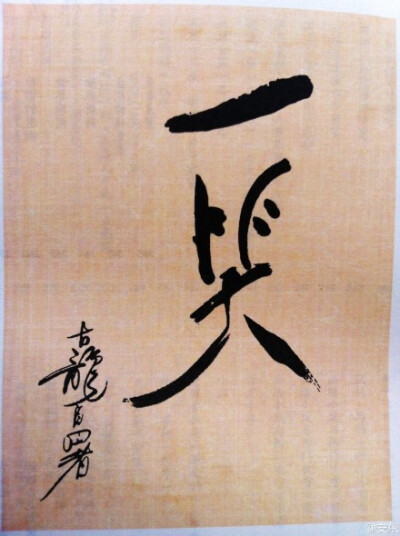 一笑
古龍自署